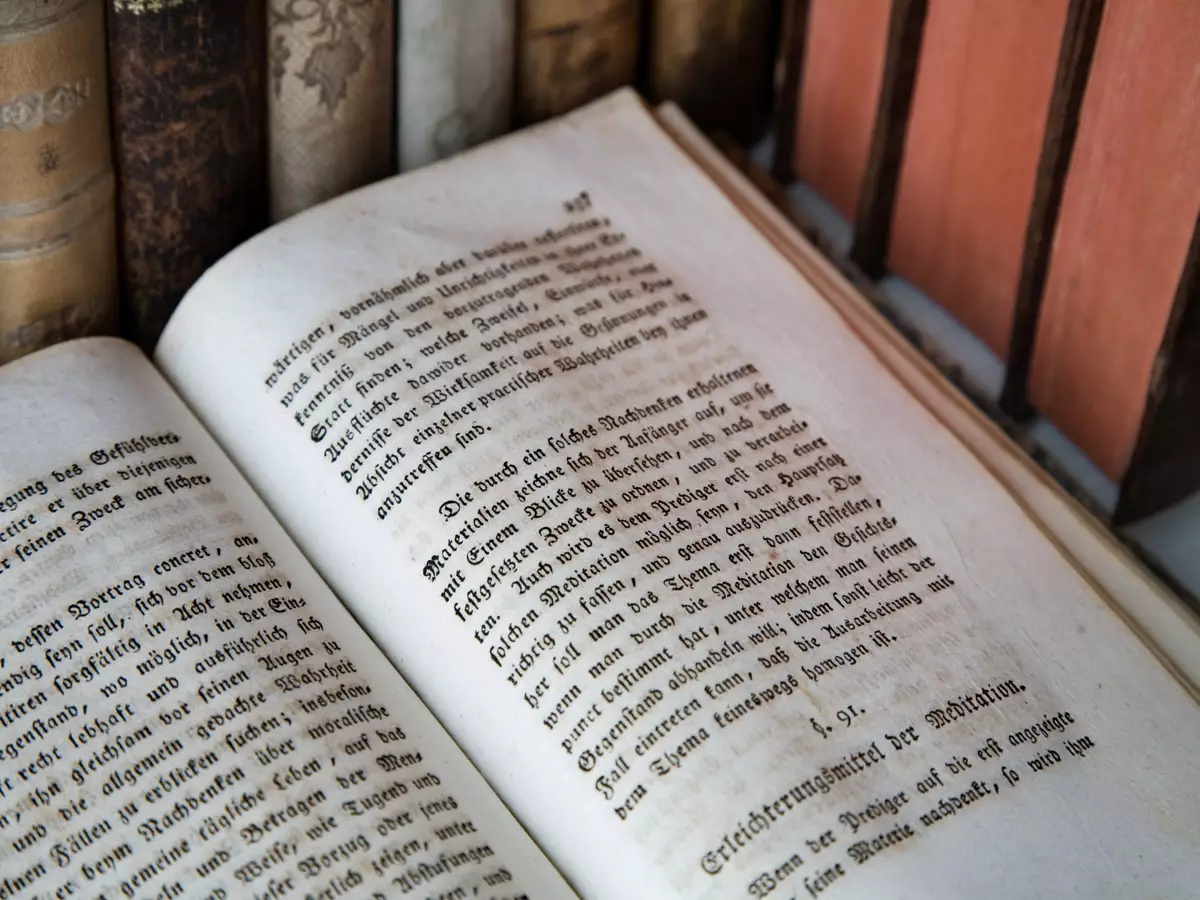 egung des Gefühlver⸗
ctire er über diejenigen
r seinen Zweck am sicher⸗
, dessen Vortrag concret, an⸗
endig seyn soll, sich vor dem bloß
itiren sorgfältig in Acht nehmen,
egenstand, wo möglich, in der Ein⸗
recht lebhaft und ausführlich sich
, ihn gleichsam vor seinen Augen zu
und die allgemein gedachte Wahrheit
elnen Fällen zu erblicken suchen; insbeson⸗
er beym Nachdenken über moralische
gemeine tägliche Leben, auf das
deln und Betragen der Men⸗
und Weise, wie Tugend und
ieser Vorzug oder jenes
erlich zeigen, unter
Abstufungen
en, und
237
wärtigen, vornähmlich aber darüber reflectiren,
was für Mängel und Unrichtigkeiten in ihrer Er⸗
kenntniß von den vorzutragenden Wahrheiten
Statt finden; welche Zweifel, Einwürfe, und
Ausflüchte dawider vorhanden; was für Hin⸗
dernisse der Wirksamkeit auf die Gesinnungen in
Absicht einzelner practischer Wahrheiten bey ihnen
anzutreffen sind.
Die durch ein solches Nachdenken erhaltenen
Materialien zeichne sich der Anfänger auf, um sie
mit Einem Blicke zu übersehen, und nach dem
festgesetzten Zwecke zu ordnen, und zu verarbei⸗
ten. Auch wird es dem Prediger erst nach einer
solchen Meditation möglich seyn, den Hauptsatz
richtig zu fassen, und genau auszudrücken. Da⸗
her soll man das Thema erst dann feststellen,
wenn man durch die Meditation den Gesichts⸗
punct bestimmt hat, unter welchem man seinen
Gegenstand abhandeln will; indem sonst leicht der
Fall eintreten kann, daß die Ausarbeitung mit
dem Thema keineswegs homogen ist.
§. 91.
Erleichterungsmittel der Meditation.
Wenn der Prediger auf die erst angezeigte
seine Materie nachdenkt, so wird ihm